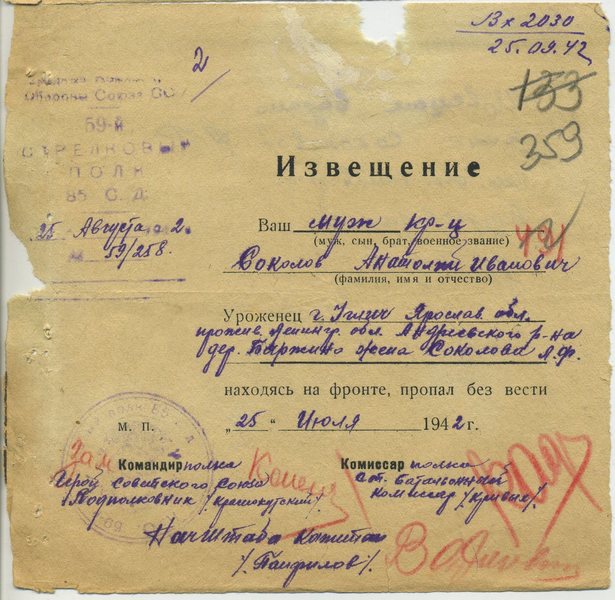 Вх 2030
25.09.42
2/
133
359
Обороны Союза ССР
59-й
СТРЕЛКОВЫЙ
ПОЛК
85 С.Д.
25 Августа 2
№ 59/258.
Извещение
Ваш муж кр-ц
(муж, сын, брат, военное звание)
491
Соколов Анатолий Иванович
(фамилия, имя и отчество)
Уроженец г. Углич Ярослав. обл.
прожив. Ленингр. обл. Андреевского р-на
дер. Баржино жена Соколова А.Ф.
находясь на фронте, пропал без вести
„25“ Июля 1942 г.
М. П.
Зам
Командир полка
Герой Советского Союза
Подполковник /Краснокутский/.
Комиссар полка
ст. батальонный
комиссар /Кривых/.
НачШтаба Капитан
/Панфилов/.